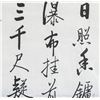 日照香鑪
瀑布挂前
三千尺疑